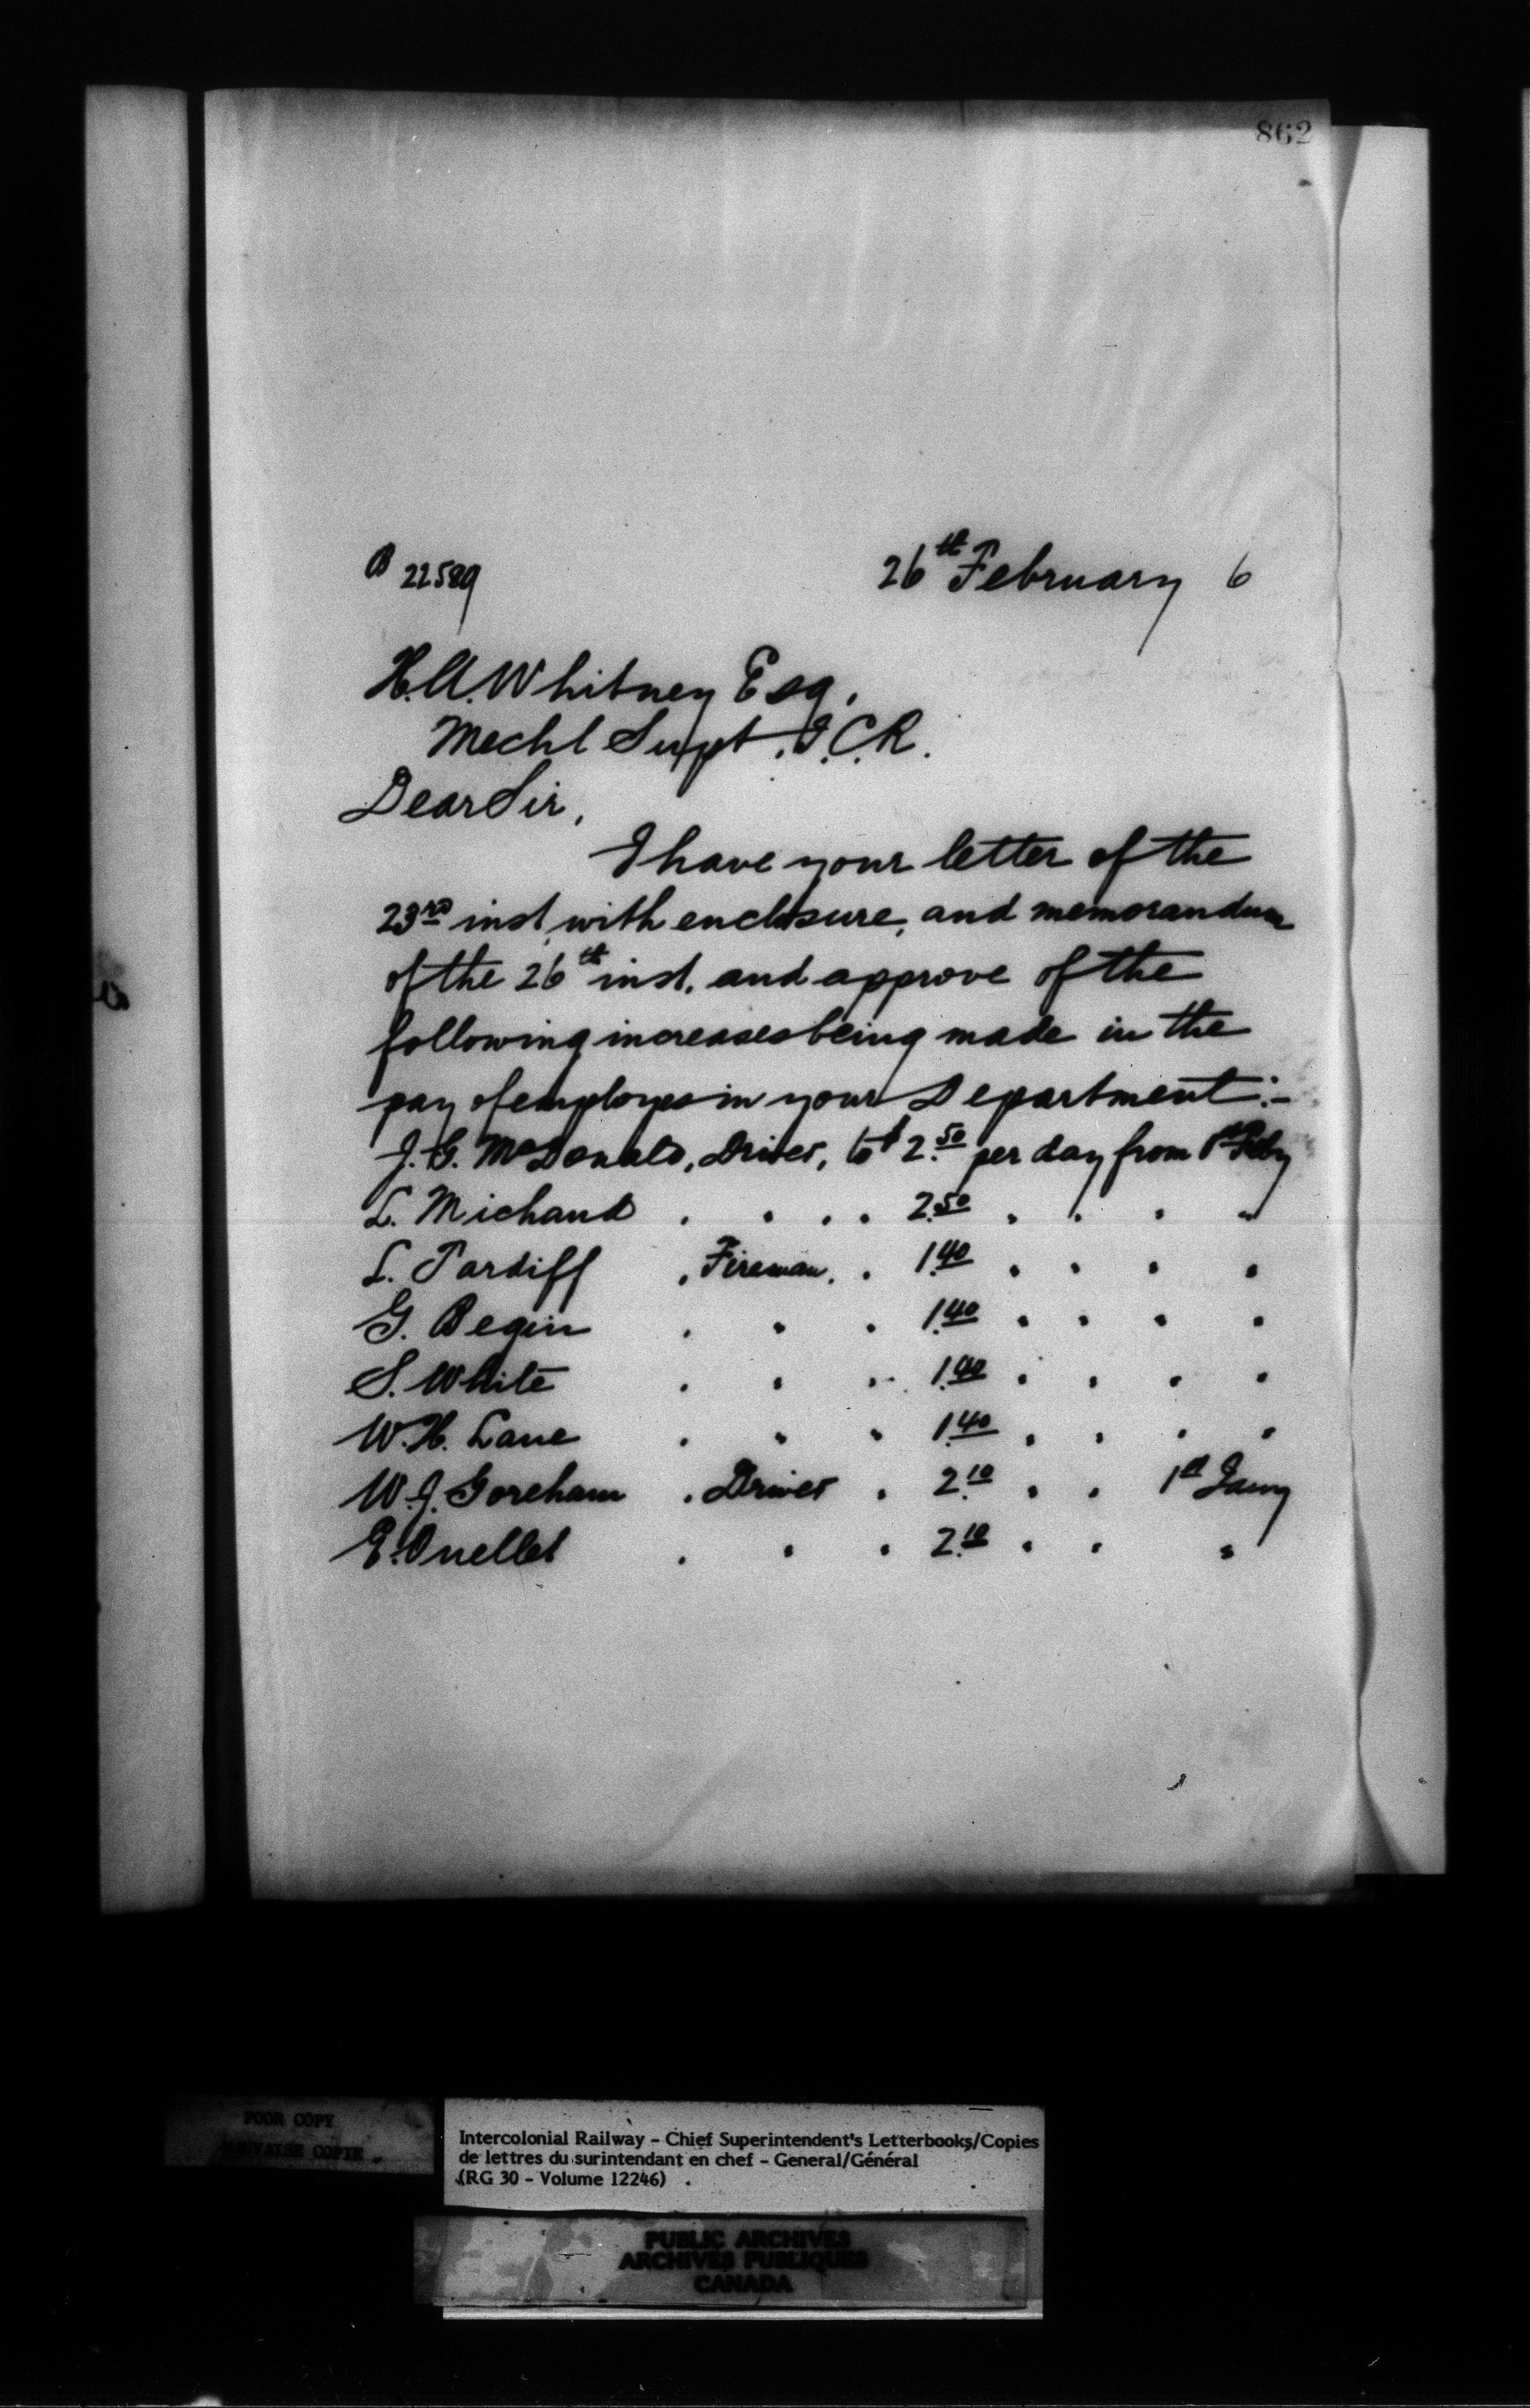 862
B 22589
26th February 6
H.A. Whitney Esq.
Mechl Supt. I.C.R.
Dear Sir,
I have your letter of the
23rd inst, with enclosure, and memorandum
of the 26th inst. and approve of the
following increases being made in the
pay of employes in your Department:-
J. G. McDonald, Driver, to $2.50 per day from 1st Feby
L. Michaud . . . . 2.50 . . . "
L. Tardiff . Fireman . . 1.40 . . . .
G. Begin . . . 1.40 . . . .
S. White . . . 1.40 . . . .
W. H. Lane . . . 1.40 . . . .
W. J. Goreham . Driver . 2.10 . . 1st Jany
E. Ouellet . . . 2.10 . . .
POOR COPY
MAUVAISE COPIE
Intercolonial Railway - Chief Superintendent's Letterbooks/Copies
de lettres du surintendant en chef - General/Général
(RG 30 - Volume 12246)
PUBLIC ARCHIVES
ARCHIVES PUBLIQUES
CANADA